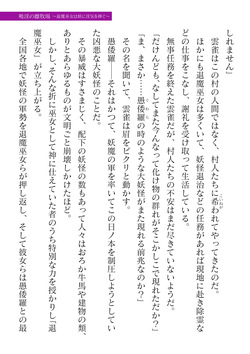 暁淫の雌牧場 ～退魔巫女は妖に浮気を捧ぐ～
しれません」
雲雀はこの村の人間ではなく、村人たちに希われてやってきたのだ。
ほかにも退魔巫女は多くいて、妖怪退治などの任務があれば現地に赴き除霊な
どの仕事をこなし、謝礼を受け取って生活している。
無事任務を終えた雲雀だが、村人たちの不安はまだ尽きていないようだ。
「だけんども、なしてまた今んなって化け物の群れがそこかしこで現れただか？
「ま、まさか……愚倭羅の時のような大妖怪がまた現れる前兆なのか？」
その名を聞いて、雲雀は眉をピクリと動かす。
愚倭羅――それはかつて、妖魔の軍を率いてこの日ノ本を制圧しようとしてい
た凶悪な大妖怪の名だ。
その暴威はすさまじく、配下の妖怪の数もあって人々はおろか牛馬や建物の類、
ありとあらゆるものが文明ごと崩壊しかけたほど。
しかしそんな折に巫女として神に仕えていた者のうち特別な力を授かり「退
魔巫女」が立ち上がる。
全国各地で妖怪の軍勢を退魔巫女らが押し返し、そして彼女らは愚倭羅との最